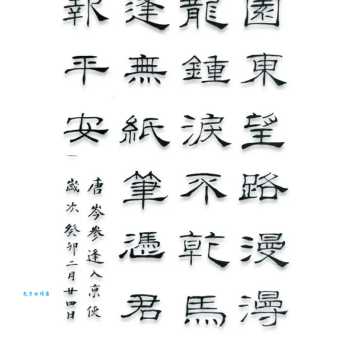 園東望路漫漫
龍鍾淚不乾馬
逢無紙筆憑君
報平安
唐岑參逢入京使
歲次癸卯二月廿四日